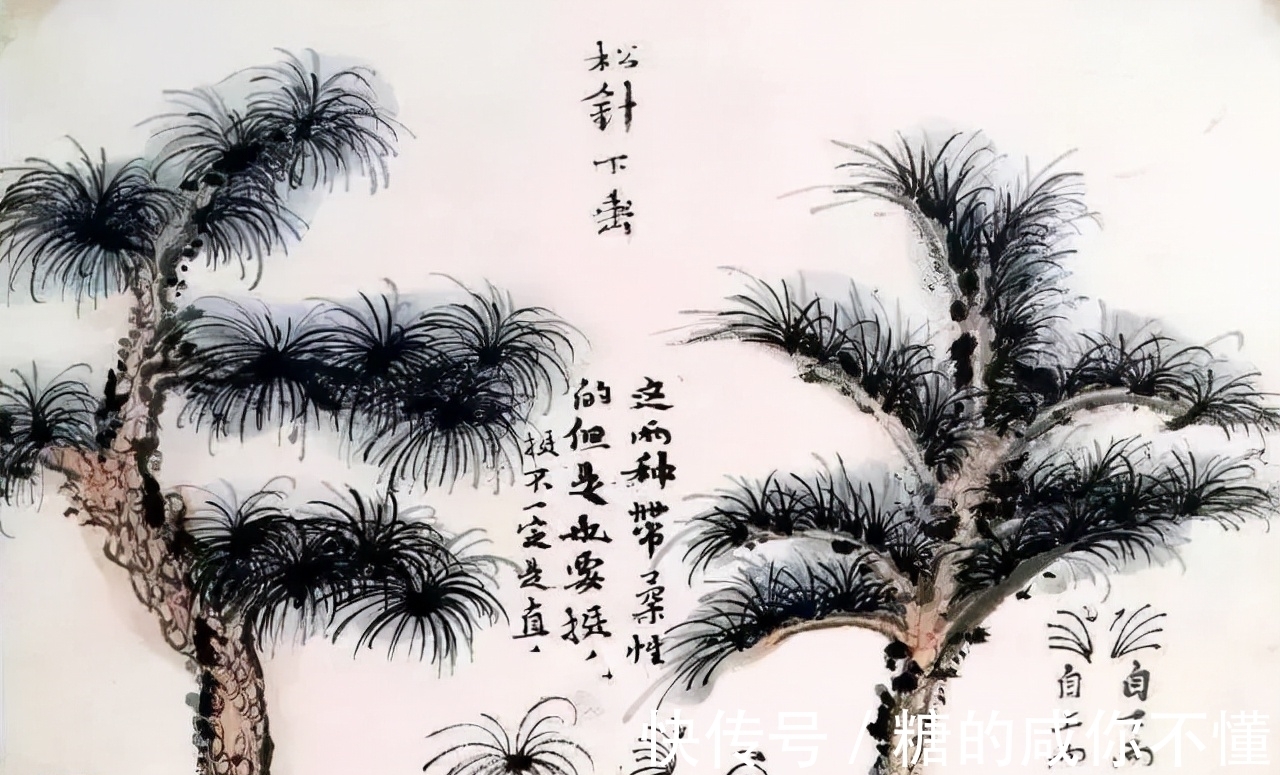 松針下垂
这两种帶柔性
的但是也要挺、
挺不一定是直、
自
自上
快传号 / 糖的咸你不懂